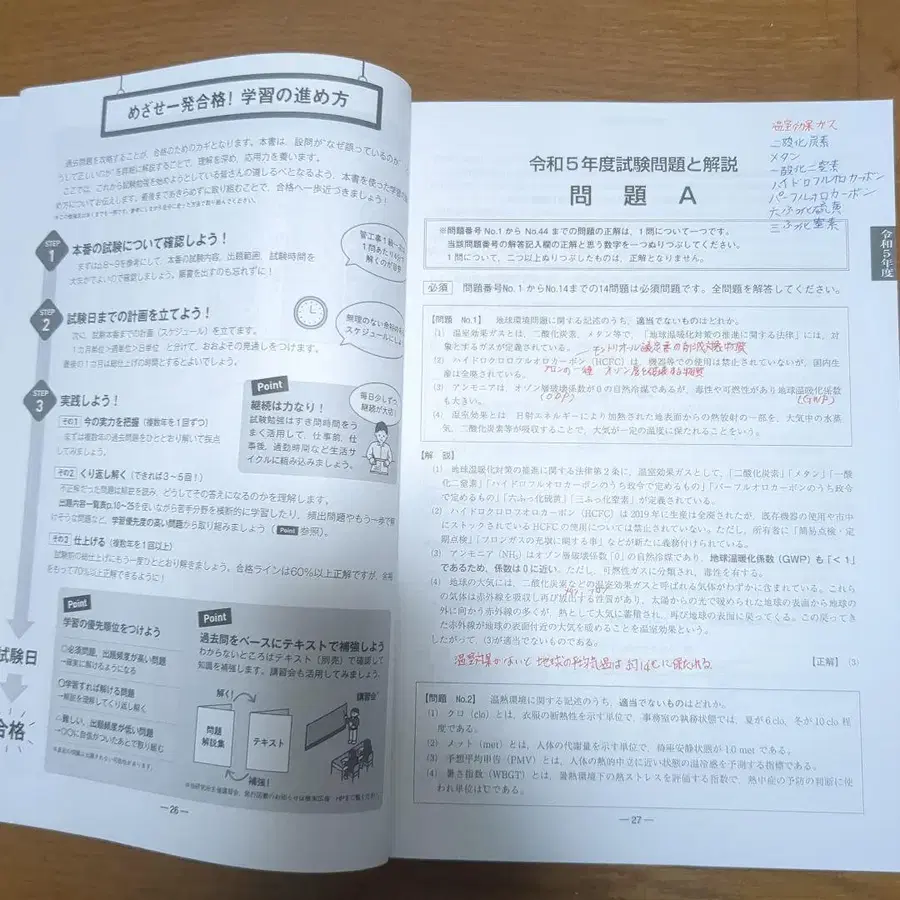 めざせ一発合格！学習の進め方
過去問題を攻略することが、合格のためのカギとなります。本書は、設問が"なぜ誤っているのか"
正しいのか"を詳細に解説することで、理解を深め、応用力を養います。
ここでは、これから試験勉強を始めようとしている皆さんの道しるべとなるよう、本書を使った学習の進
め方についてお伝えします。最後まであきらめずに取り組むことで、合格へ一歩近づきましょう！
STEP
1
本番の試験について確認しよう！
まずはp8～9を参考にして、本番の試験内容、出題範囲、試験時間を
STEP
2
試験日までの計画を立てよう！
次に、試験本番までの計画（スケジュール）を立てます。
1カ月単位＞週単位＞日単位 と分けて、おおよその見通しをつけます。
最後の1カ月は総仕上げの時間とするとよいでしょう。
STEP
3
実践しよう！
その1 今の実力を把握（複数年を1回ずつ）
まずは複数年の過去問題をひととおり解いて採点
してみましょう。
Point
継続は力なり！
試験勉強はすき間時間をう
まく活用して、仕事前、仕
事後、通勤時間など生活サ
イクルに組み込みましょう。
毎日少しずつ
継続が大切！
その2 くり返し解く（できれば3～5回！）
不正解だった問題は解説を読み、どうしてその答えになるのかを理解します。
出題内容一覧表p.10～25を使いながら苦手分野を横断的に学習したり、頻出問題やもう一歩で解
けそうな問題など、学習優先度の高い問題から取り組みましょう（Point参照）。
その3 仕上げる（複数年を1回以上）
試験前の総仕上げにもう一度ひととおり解きましょう。合格ラインは60％以上正解ですが、余裕
をもって70％以上正解できるように！
Point
学習の優先順位をつけよう
○必須問題、出題頻度が高い問題
→確実に解けるようになる
○学習すれば解ける問題
→解説を理解してくり返し解く
△難しい、出題頻度が低い問題
→○○に自信がついたあとで取り組む
Point
過去問をベースにテキストで補強しよう
わからないところはテキスト（別売）で確認して
知識を補強します。講習会も活用してみましょう。
解く！
問題
解説集
テキスト
補強！
講習会
試験日
合格
― 26 ―
温室効果ガス
二酸化炭素
メタン
一酸化二窒素
ハイドロフルオロカーボン
パーフルオロカーボン
六ふっ化硫黄
三ふっ化窒素
令和5年度
令和5年度試験問題と解説
問題A
※問題番号 No.1 から No.44 までの問題の正解は、1問について一つです。
当該問題番号の解答記入欄の正解と思う数字を一つぬりつぶしてください。
1問について、二つ以上ぬりつぶしたものは、正解となりません。
必須 問題番号No.1 からNo.14までの14問題は必須問題です。全問題を解答してください。
【問題 No.1】 地球環境問題に関する記述のうち、適当でないものはどれか。
(1) 温室効果ガスとは、二酸化炭素、メタン等で、「地球温暖化対策の推進に関する法律」には、対
象とするガスが定義されている。
モントリオール議定書の削減対象物質
(2) ハイドロクロロフルオロカーボン（HCFC）は、機器等での使用は禁止されていないが、国内生
産は全廃されている。
フロンの一種 オゾン層を破壊する物質
(3) アンモニアは、オゾン層破壊係数が0の自然冷媒であるが、毒性や可燃性があり地球温暖化係数
も大きい。
(ODP)
(GWP)
(4) 温室効果とは、日射エネルギーにより加熱された地表面からの熱放射の一部を、大気中の水蒸
気、二酸化炭素等が吸収することで、大気が一定の温度に保たれることをいう。
【解 説】
(1) 地球温暖化対策の推進に関する法律第2条に、温室効果ガスとして、「二酸化炭素」「メタン」「一酸
化二窒素」「ハイドロフルオロカーボンのうち政令で定めるもの」「パーフルオロカーボンのうち政令
で定めるもの」「六ふっ化硫黄」「三ふっ化窒素」が定義されている。
(2) ハイドロクロロフオロカーボン（HCFC）は2019年に生産は全廃されたが、既存機器の使用や市中
にストックされているHCFCの使用については禁止されていない。ただし、所有者に「簡易点検・定
期点検」「フロンガスの充塡に関する事」などが新たに義務付けられている。
(3) アンモニア（NH₃）はオゾン層破壊係数「0」の自然冷媒であり、地球温暖化係数（GWP）も「＜1」
であるため、係数は0に近い。ただし、可燃性ガスに分類され、毒性を有する。
(4) 地球の大気には、二酸化炭素などの温室効果ガスと呼ばれる気体がわずかに含まれている。これら
の気体は赤外線を吸収し再び放出する性質があり、太陽からの光で暖められた地球の表面から地球の
外に向かう赤外線の多くが、熱として大気に蓄積され、再び地球の表面に戻ってくる。この戻ってき
た赤外線が地球の表面付近の大気を暖めることを温室効果という。
したがって、(3)が適当でないものである。
【正解】 (3)
温室効果がないと地球の平均気温は約14℃に保たれる
【問題 No.2】 温熱環境に関する記述のうち、適当でないものはどれか。
(1) クロ（clo）とは、衣服の断熱性を示す単位で、事務室の執務状態では、夏が6 clo、冬が10 clo程
度である。
(2) メット（met）とは、人体の代謝量を示す単位で、椅座安静状態が1.0 metである。
(3) 予想平均申告（PMV）とは、人体の熱的中立に近い状態の温冷感を予測する指標である。
(4) 暑さ指数（WBGT）とは、暑熱環境下の熱ストレスを評価する指数で、熱中症の予防の判断に使
われ単位は℃である。
― 27 ―